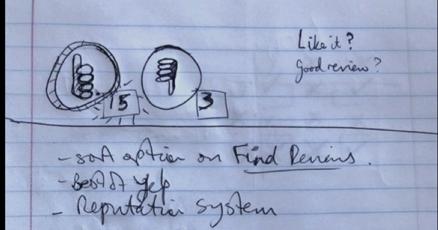 Like it?
Good review?
5
3
- sort option on Find Reviews.
- Best of yelp
- Reputation System